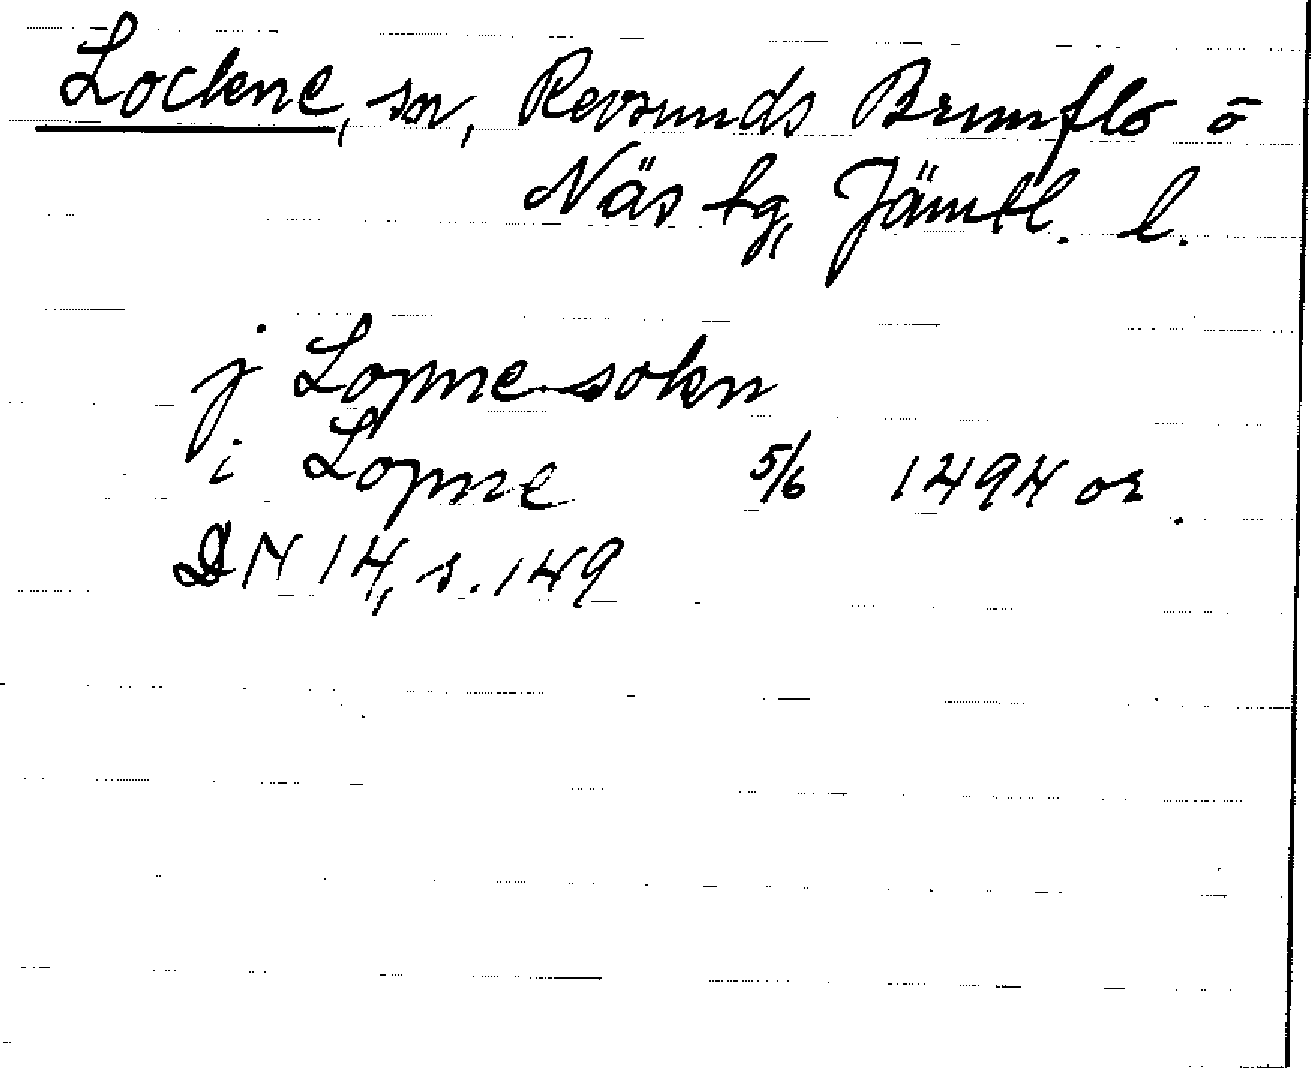 Lockne, sn, Revsunds Brunflo o
Näs tg, Jämtl. l.
j Lopne sokn
i Lopne 5/6 1494 or.
DN 14, s. 149